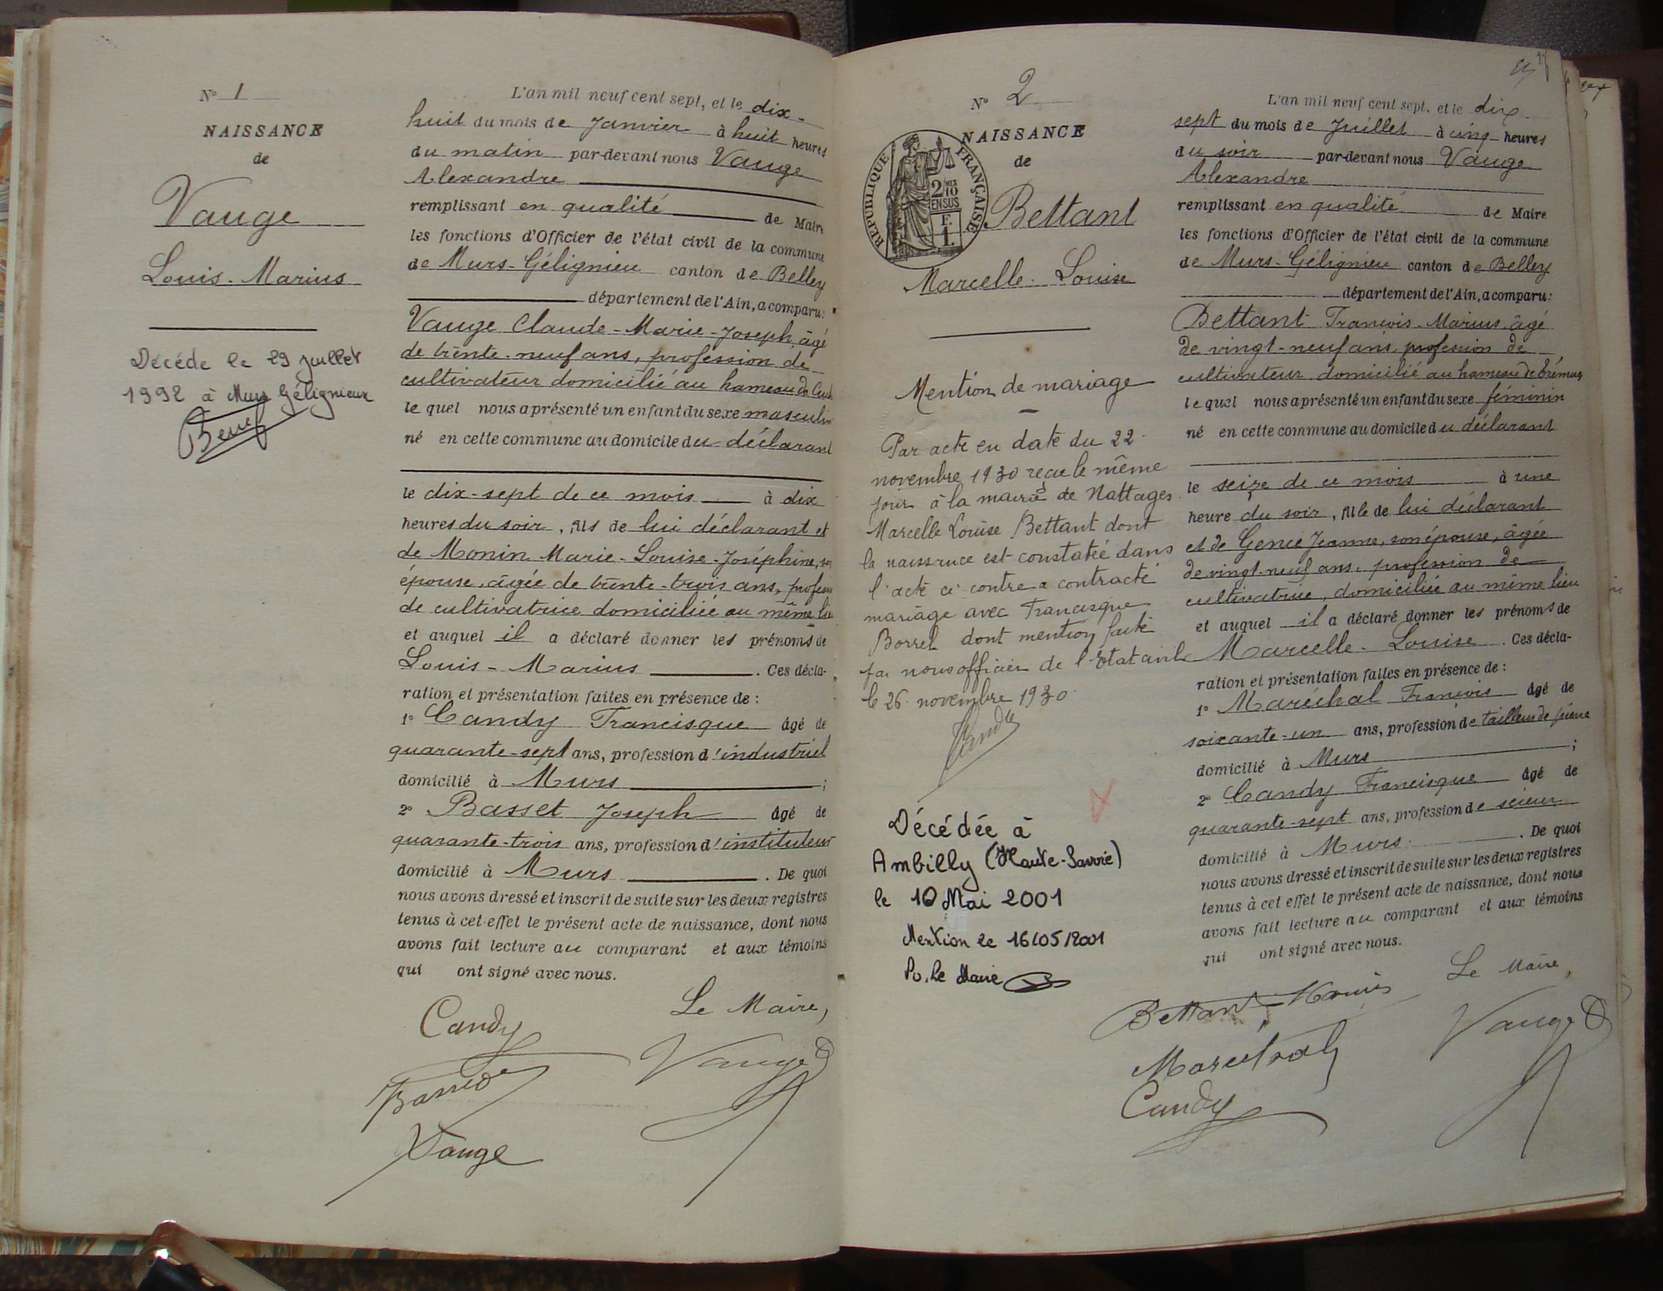 N° 1
NAISSANCE
de
Vauge
Louis-Marius
Décédé le 29 juillet
1992 à Murs Gélignieux
L'an mil neuf cent sept, et le dix-
huit du mois de Janvier à huit heures
du matin par-devant nous Vauge
Alexandre
remplissant en qualité de Maire
les fonctions d'Officier de l'état civil de la commune
de Murs-Gélignieu canton de Belley
département de l'Ain, a comparu:
Vauge Claude-Marie-Joseph, âgé
de trente-neuf ans, profession de
cultivateur domicilié au hameau de
le quel nous a présenté un enfant du sexe masculin
né en cette commune au domicile du déclarant
le dix-sept de ce mois à dix
heures du soir, fils de lui déclarant et
de Monin Marie-Louise-Joséphine, son
épouse, âgée de trente-trois ans, profession
de cultivatrice domiciliée au même lieu
et auquel il a déclaré donner les prénoms de
Louis-Marius. Ces décla-
ration et présentation faites en présence de :
1° Candy Francisque âgé de
quarante-sept ans, profession d'industriel
domicilié à Murs ;
2° Basset Joseph âgé de
quarante-trois ans, profession d'instituteur
domicilié à Murs. De quoi
nous avons dressé et inscrit de suite sur les deux registres
tenus à cet effet le présent acte de naissance, dont nous
avons fait lecture au comparant et aux témoins
qui ont signé avec nous.
Le Maire,
Candy
Vauge
Basset
Vauge
N° 2
NAISSANCE
de
RÉPUBLIQUE FRANÇAISE
2 10
EN SUS
Bettant
Marcelle-Louise
Mention de mariage
Par acte en date du 22
novembre 1930 reçu le même
jour à la mairie de Nattages
Marcelle Louise Bettant dont
la naissance est constatée dans
l'acte ci contre a contracté
mariage avec Francisque
Borrel dont mention faite
par nous officier de l'état civil
le 26 novembre 1930
Décédée à
Ambilly (Haute-Savoie)
le 10 Mai 2001
Mention le 16/05/2001
Po. le Maire
L'an mil neuf cent sept, et le dix-
sept du mois de Juillet à cinq heures
du soir par-devant nous Vauge
Alexandre
remplissant en qualité de Maire
les fonctions d'Officier de l'état civil de la commune
de Murs-Gélignieu canton de Belley
département de l'Ain, a comparu:
Bettant François-Marius âgé
de vingt-neuf ans, profession de
cultivateur domicilié au hameau de
le quel nous a présenté un enfant du sexe féminin
né en cette commune au domicile du déclarant
le seize de ce mois à une
heure du soir, fille de lui déclarant
et de Gence Jeanne, son épouse, âgée
de vingt-neuf ans, profession de
cultivatrice, domiciliée au même lieu
et auquel il a déclaré donner les prénoms de
Marcelle-Louise. Ces décla-
ration et présentation faites en présence de :
1° Maréchal François âgé de
soixante-un ans, profession de tailleur de pierre
domicilié à Murs ;
2° Candy Francisque âgé de
quarante-sept ans, profession de scieur
domicilié à Murs. De quoi
nous avons dressé et inscrit de suite sur les deux registres
tenus à cet effet le présent acte de naissance, dont nous
avons fait lecture au comparant et aux témoins
qui ont signé avec nous.
Le Maire,
Bettant Marius
Vauge
Marechal
Candy